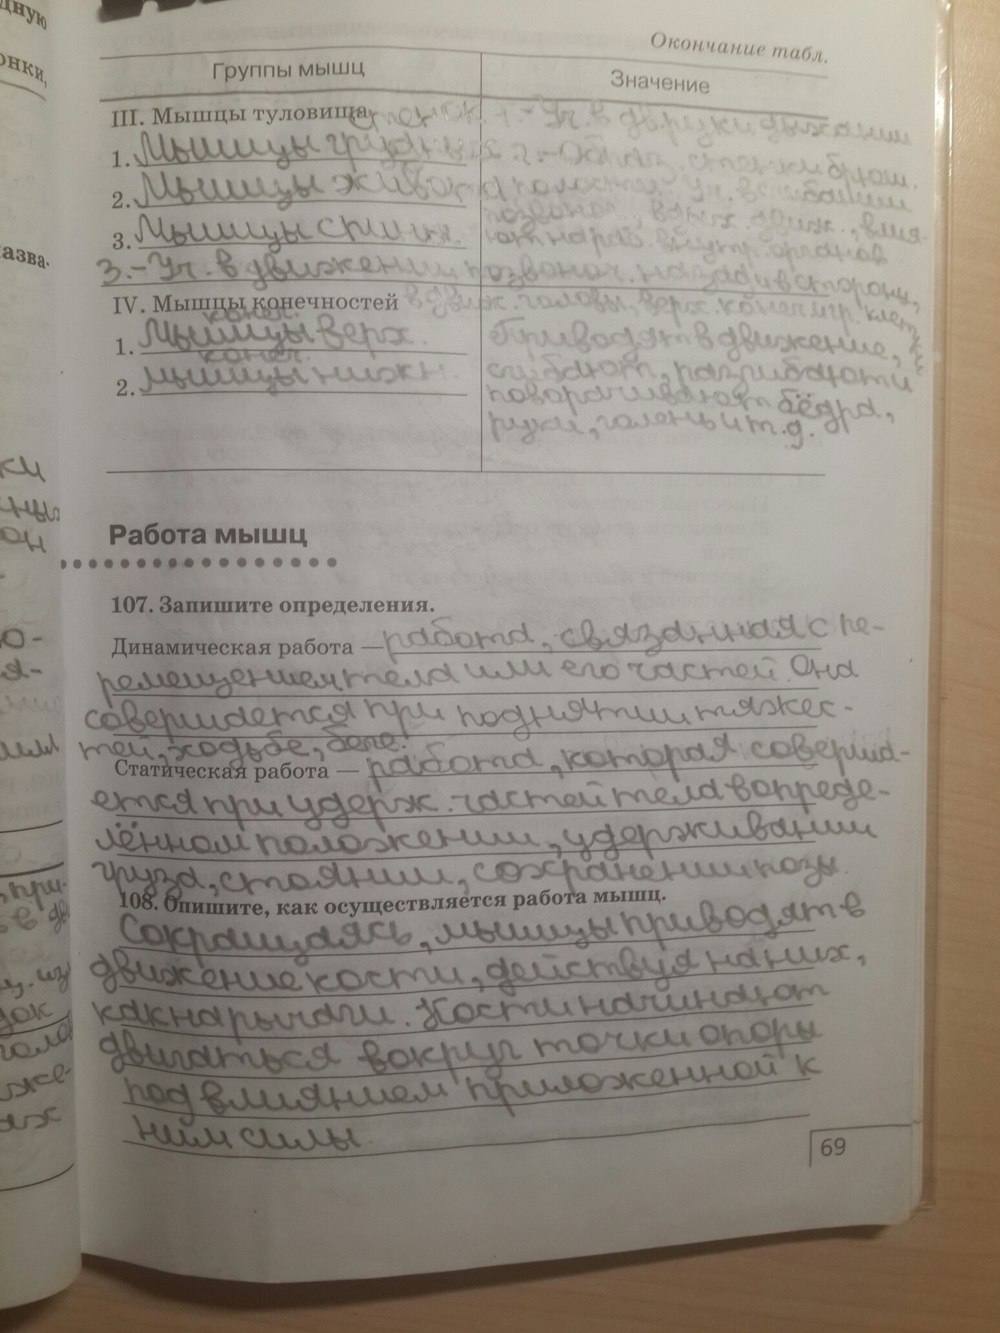 дную
онки,
азва-
Окончание табл.
Группы мышц
Значение
III. Мышцы туловища
1.- Уч. в дыхании
1. Мышцы грудн.
2.- Образ. стенки брюш.
2. Мышцы живота
полости. Уч. в сгибании
позвоноч., дых. движ., влия-
3. Мышцы спины.
ют на раб. внутр. органов
3.- Уч. в движении позвоноч. назад и в сторону,
IV. Мышцы конечностей
в движ. головы, верх. конеч. и гр. клетки
конеч.
1. Мышцы верх.
Приводят в движение,
конеч.
2. Мышцы нижн.
сгибают, разгибают и
поворачивают бёдра,
руки, голень и т.д.
Работа мышц
107. Запишите определения.
Динамическая работа — работа, связанная с пе-
ремещением тела или его частей. Она
совершается при поднятии тяжес-
тей, ходьбе, беге.
Статическая работа — работа, которая соверша-
ется при удерж. частей тела в опреде-
лённом положении, удерживании
груза, стоянии, сохранении позы.
108. Опишите, как осуществляется работа мышц.
Сокращаясь, мышцы приводят в
движение кости, действуя на них,
как на рычаги. Кости начинают
двигаться вокруг точки опоры
под влиянием приложенной к
ним силы.
69